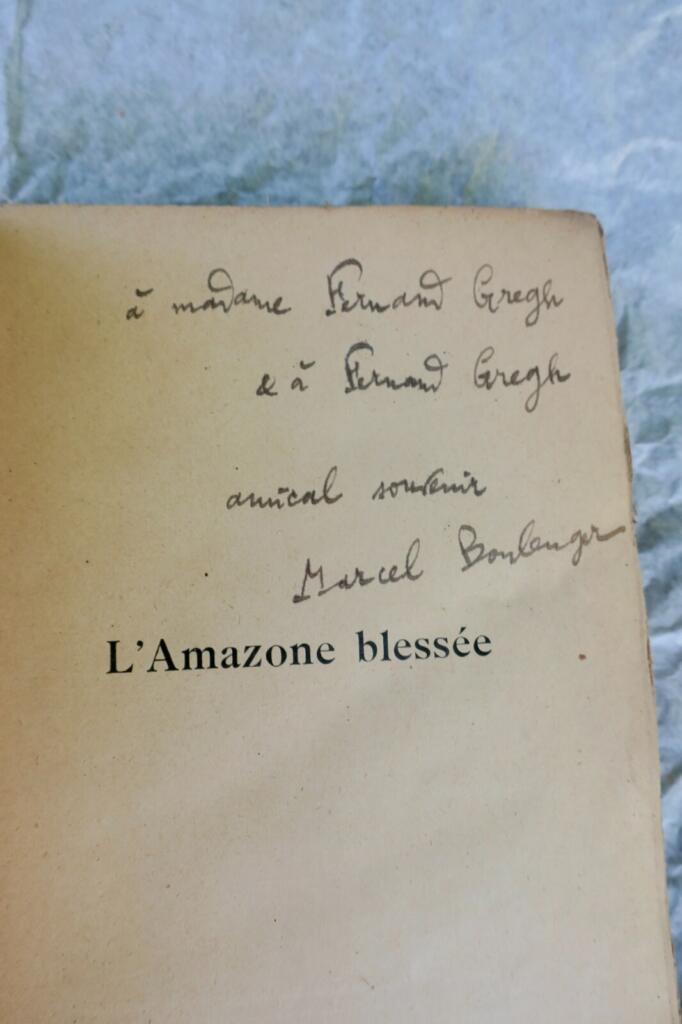 à madame Fernand Gregh
& à Fernand Gregh
amical souvenir
Marcel Boulenger
L'Amazone blessée